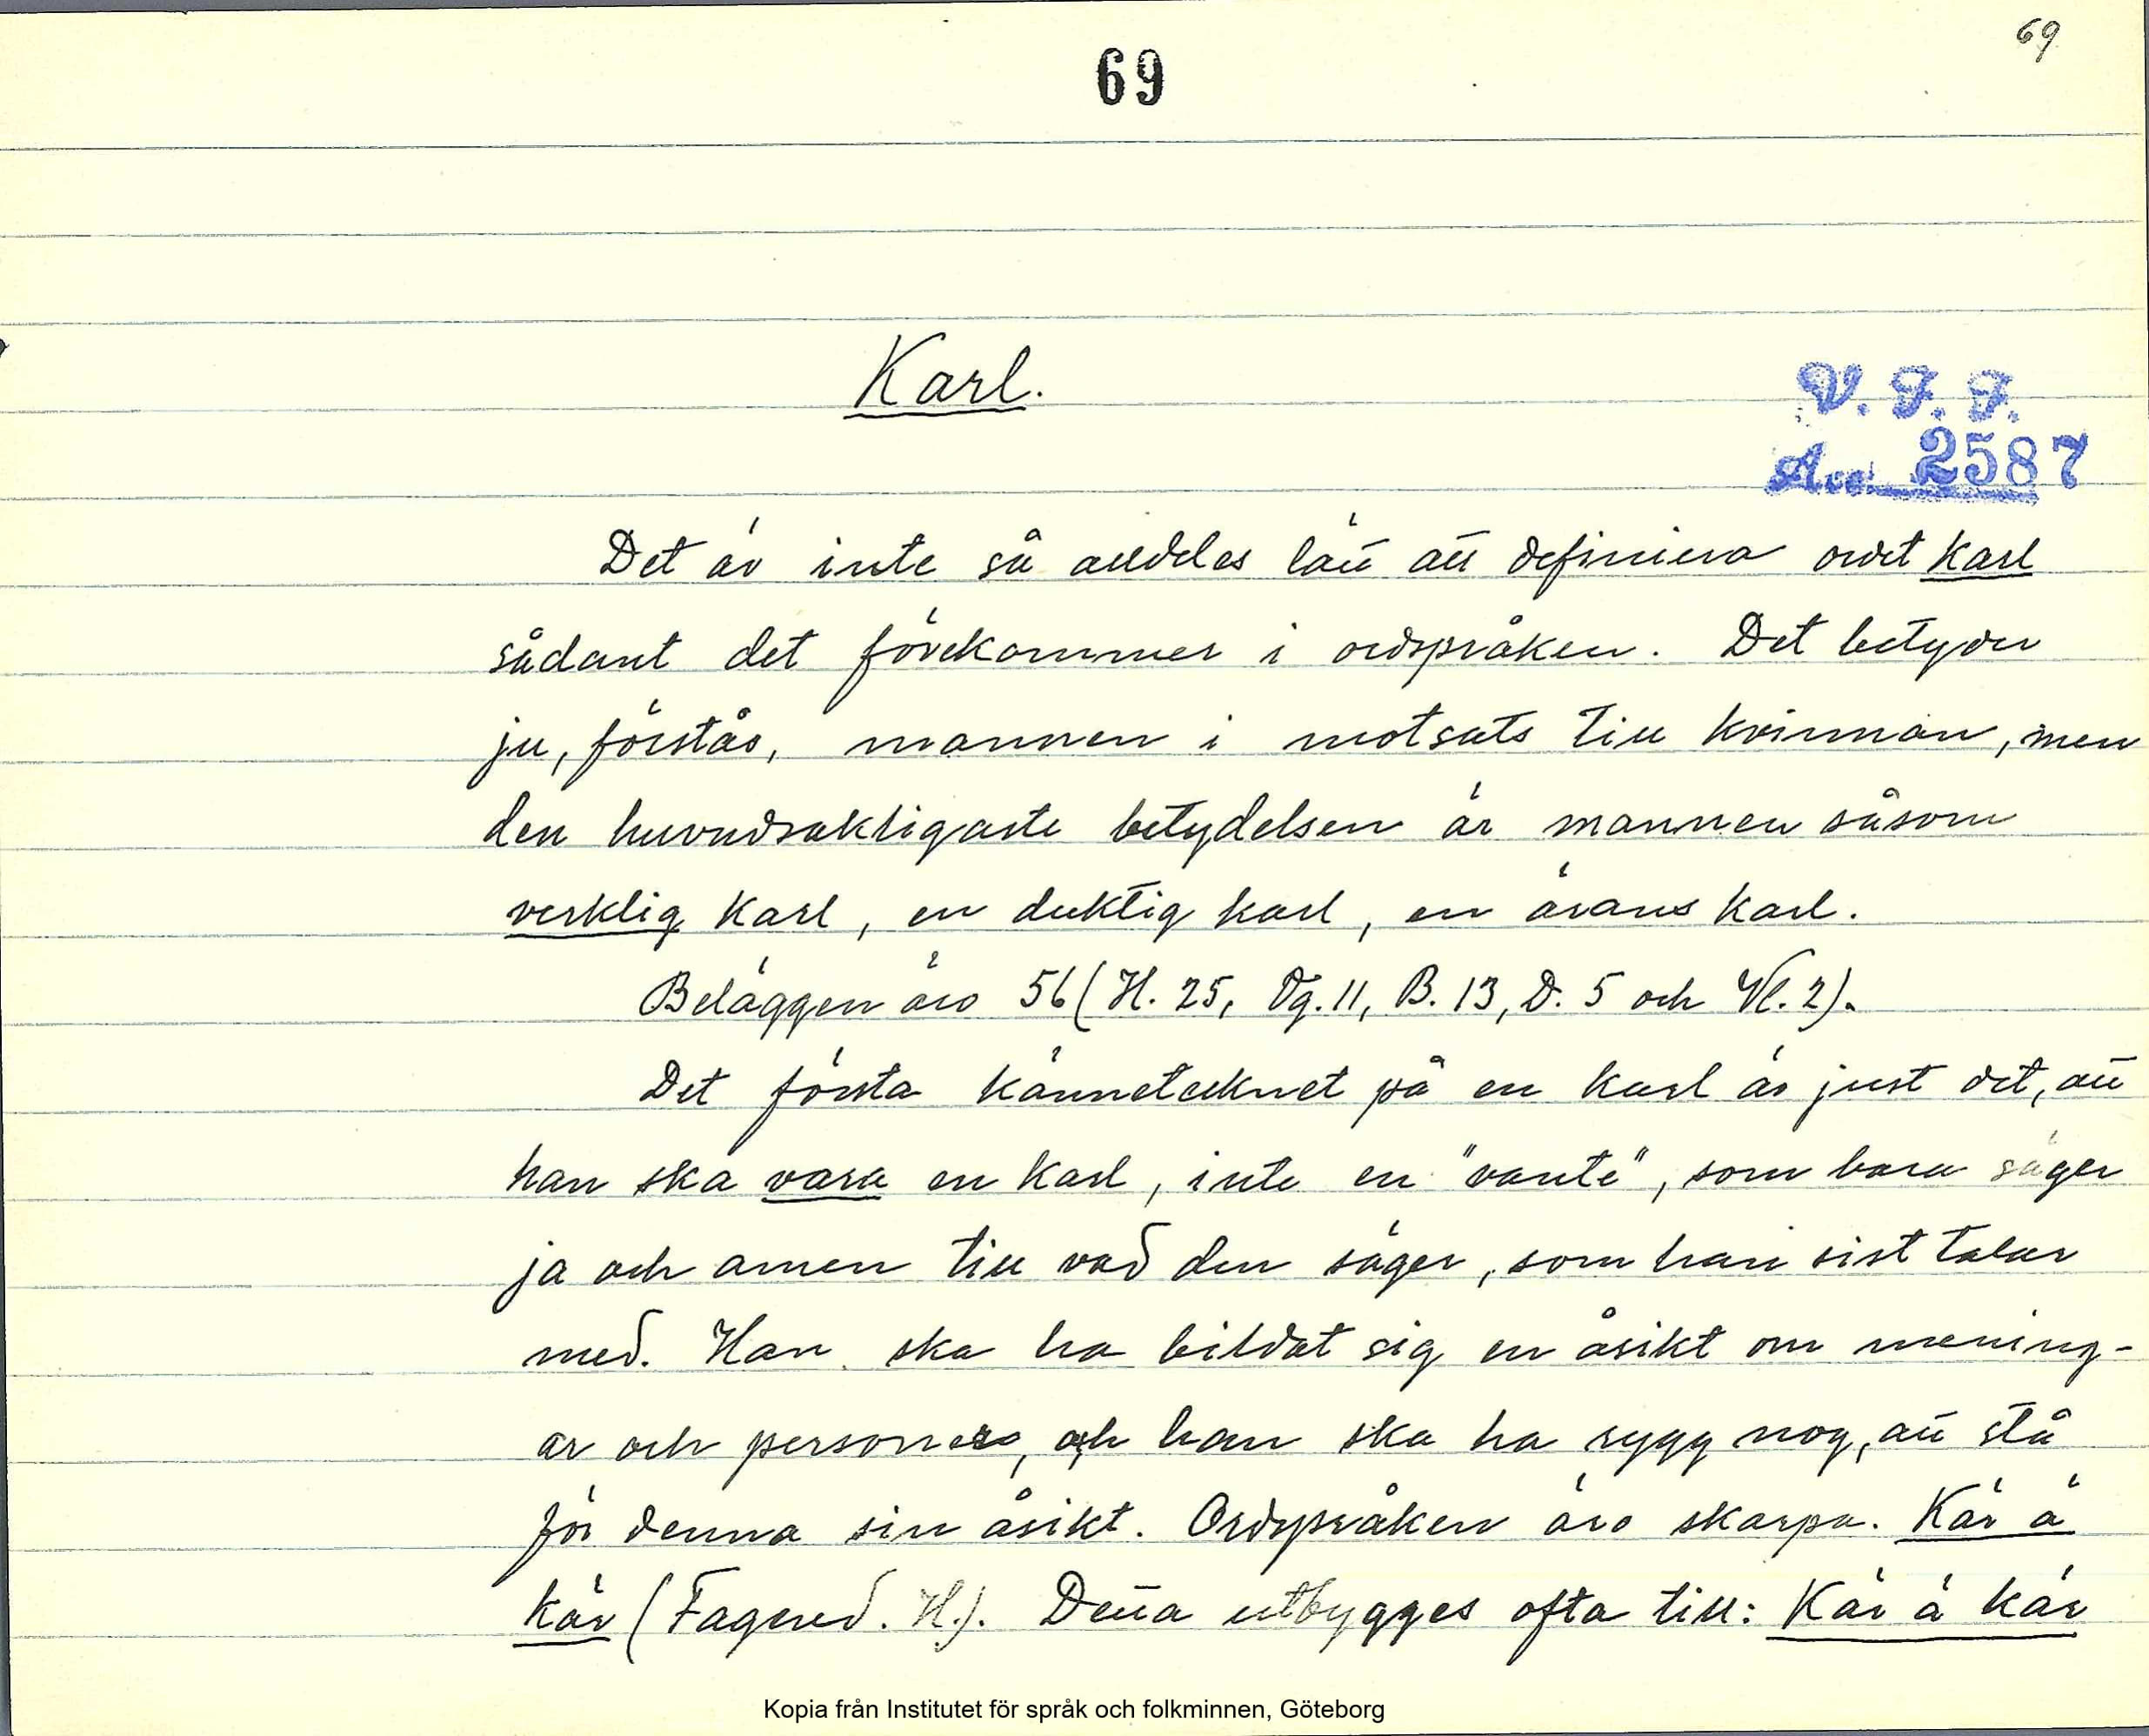 69
69
Karl.
V. F. F.
Acc. 2587
Det är inte så alldeles lätt att definiera ordet Karl
sådant det förekommer i ordspråken. Det betyder
ju, förstås, mannen i motsats till kvinnan, men
den huvudsakligaste betydelsen är mannen såsom
verklig karl, en duktig karl, en ärans karl.
Beläggen äro 56 (H. 25, Vg. 11, B. 13, D. 5 och Vl. 2).
Det första kännetecknet på en karl är just det, att
han ska vara en karl, inte en "vante", som bara säger
ja och amen till vad den säger, som han sist talar
med. Han ska ha bildat sig en åsikt om mening-
ar och personer, och han ska ha rygg nog, att stå
för denna sin åsikt. Ordspråken äro skarpa. Kär ä
kär (Fagered. H.). Detta utbygges ofta till: Kär ä kär
Kopia från Institutet för språk och folkminnen, Göteborg